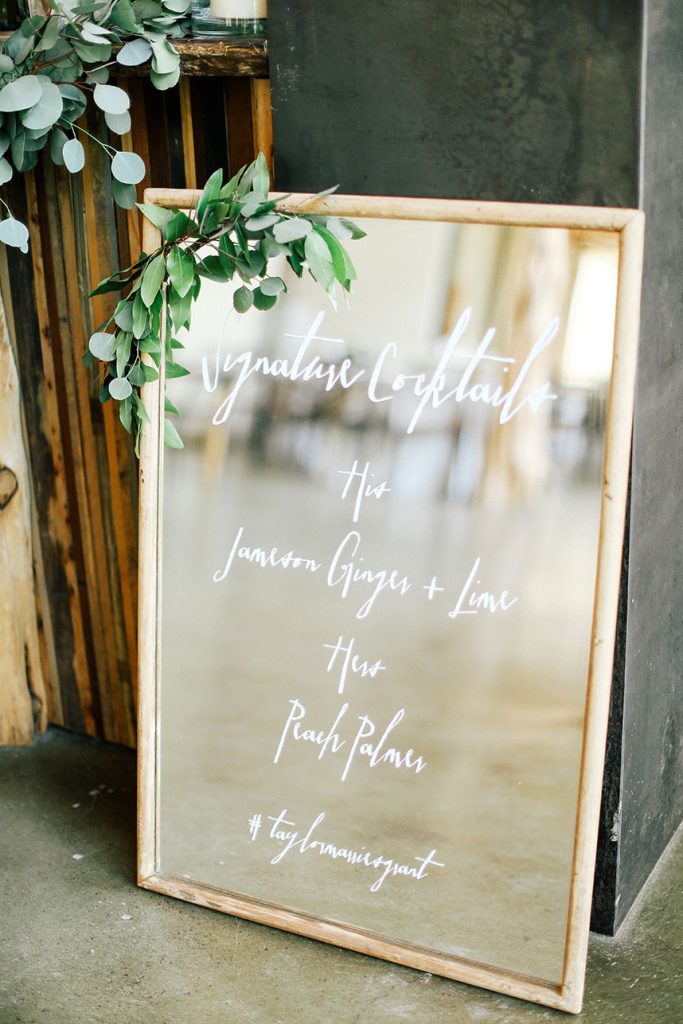 Signature Cocktails
His
Jameson Ginger + Lime
Hers
Peach Palmer
#taylormarriesgrant